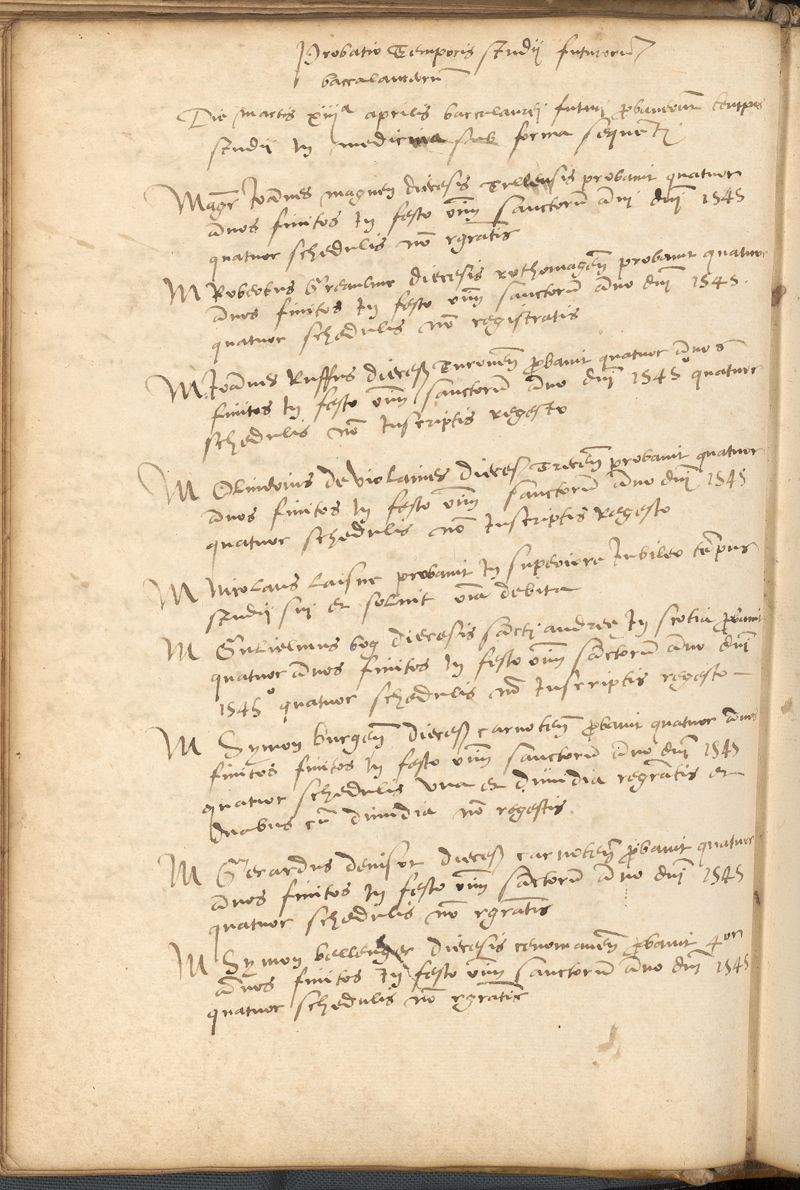 Probatio Temporis studij futuroru
baccalaureoru
Die martis xiij a aprilis baccalaurei futuri probaverunt tempus
studij in medicina sub forma sequenti
Magr Joannes magnen diecesis Tullensis probavit quatuor
annos finitos in festo oim sanctoru anni dni 1545
quatuor schedulis no rgratis
M Robertus Greaulme diecesis rothomagen probavit quatuor
annos finitos in festo oim sanctoru anno dni 1545.
quatuor schedulis no registratis
M Joannes Ruffus dieces Turonen probavit quatuor annos
finitos in festo oim sanctoru anno dni 1545 quatuor
schedulis no inscriptis regesto
M Oliverius de Violaines dieces Trecen probavit quatuor
annos finitos in festo oim sanctoru anno dni 1545
quatuor schedulis no inscriptis regesto
M Nicolaus laisne probavit in superiore Jubileo tempus
studij sui et solvit oia debita
M Gulielmus bog diecesis sancti andree in scotia probavit
quatuor annos finitos in festo oim sanctoru anno dni
1545 o quatuor schedulis no inscriptis regesto
M Symon burgen dieces carnoten probavit quatuor annos
finitos finitos in festo oim sanctoru anno dni 1545
quatuor schedulis una et dimidia regratis et
duabus cu dimidia no regestis
M Gerardus denisot dieces carnoten probavit quatuor
annos finitos in festo oim sanctoru anno dni 1545
quatuor schedulis no rgratis
M Symon bellenger diecesis cenomanen probavit 4or
annos finitos in festo oim sanctoru anno dni 1545
quatuor schedulis no rgratis